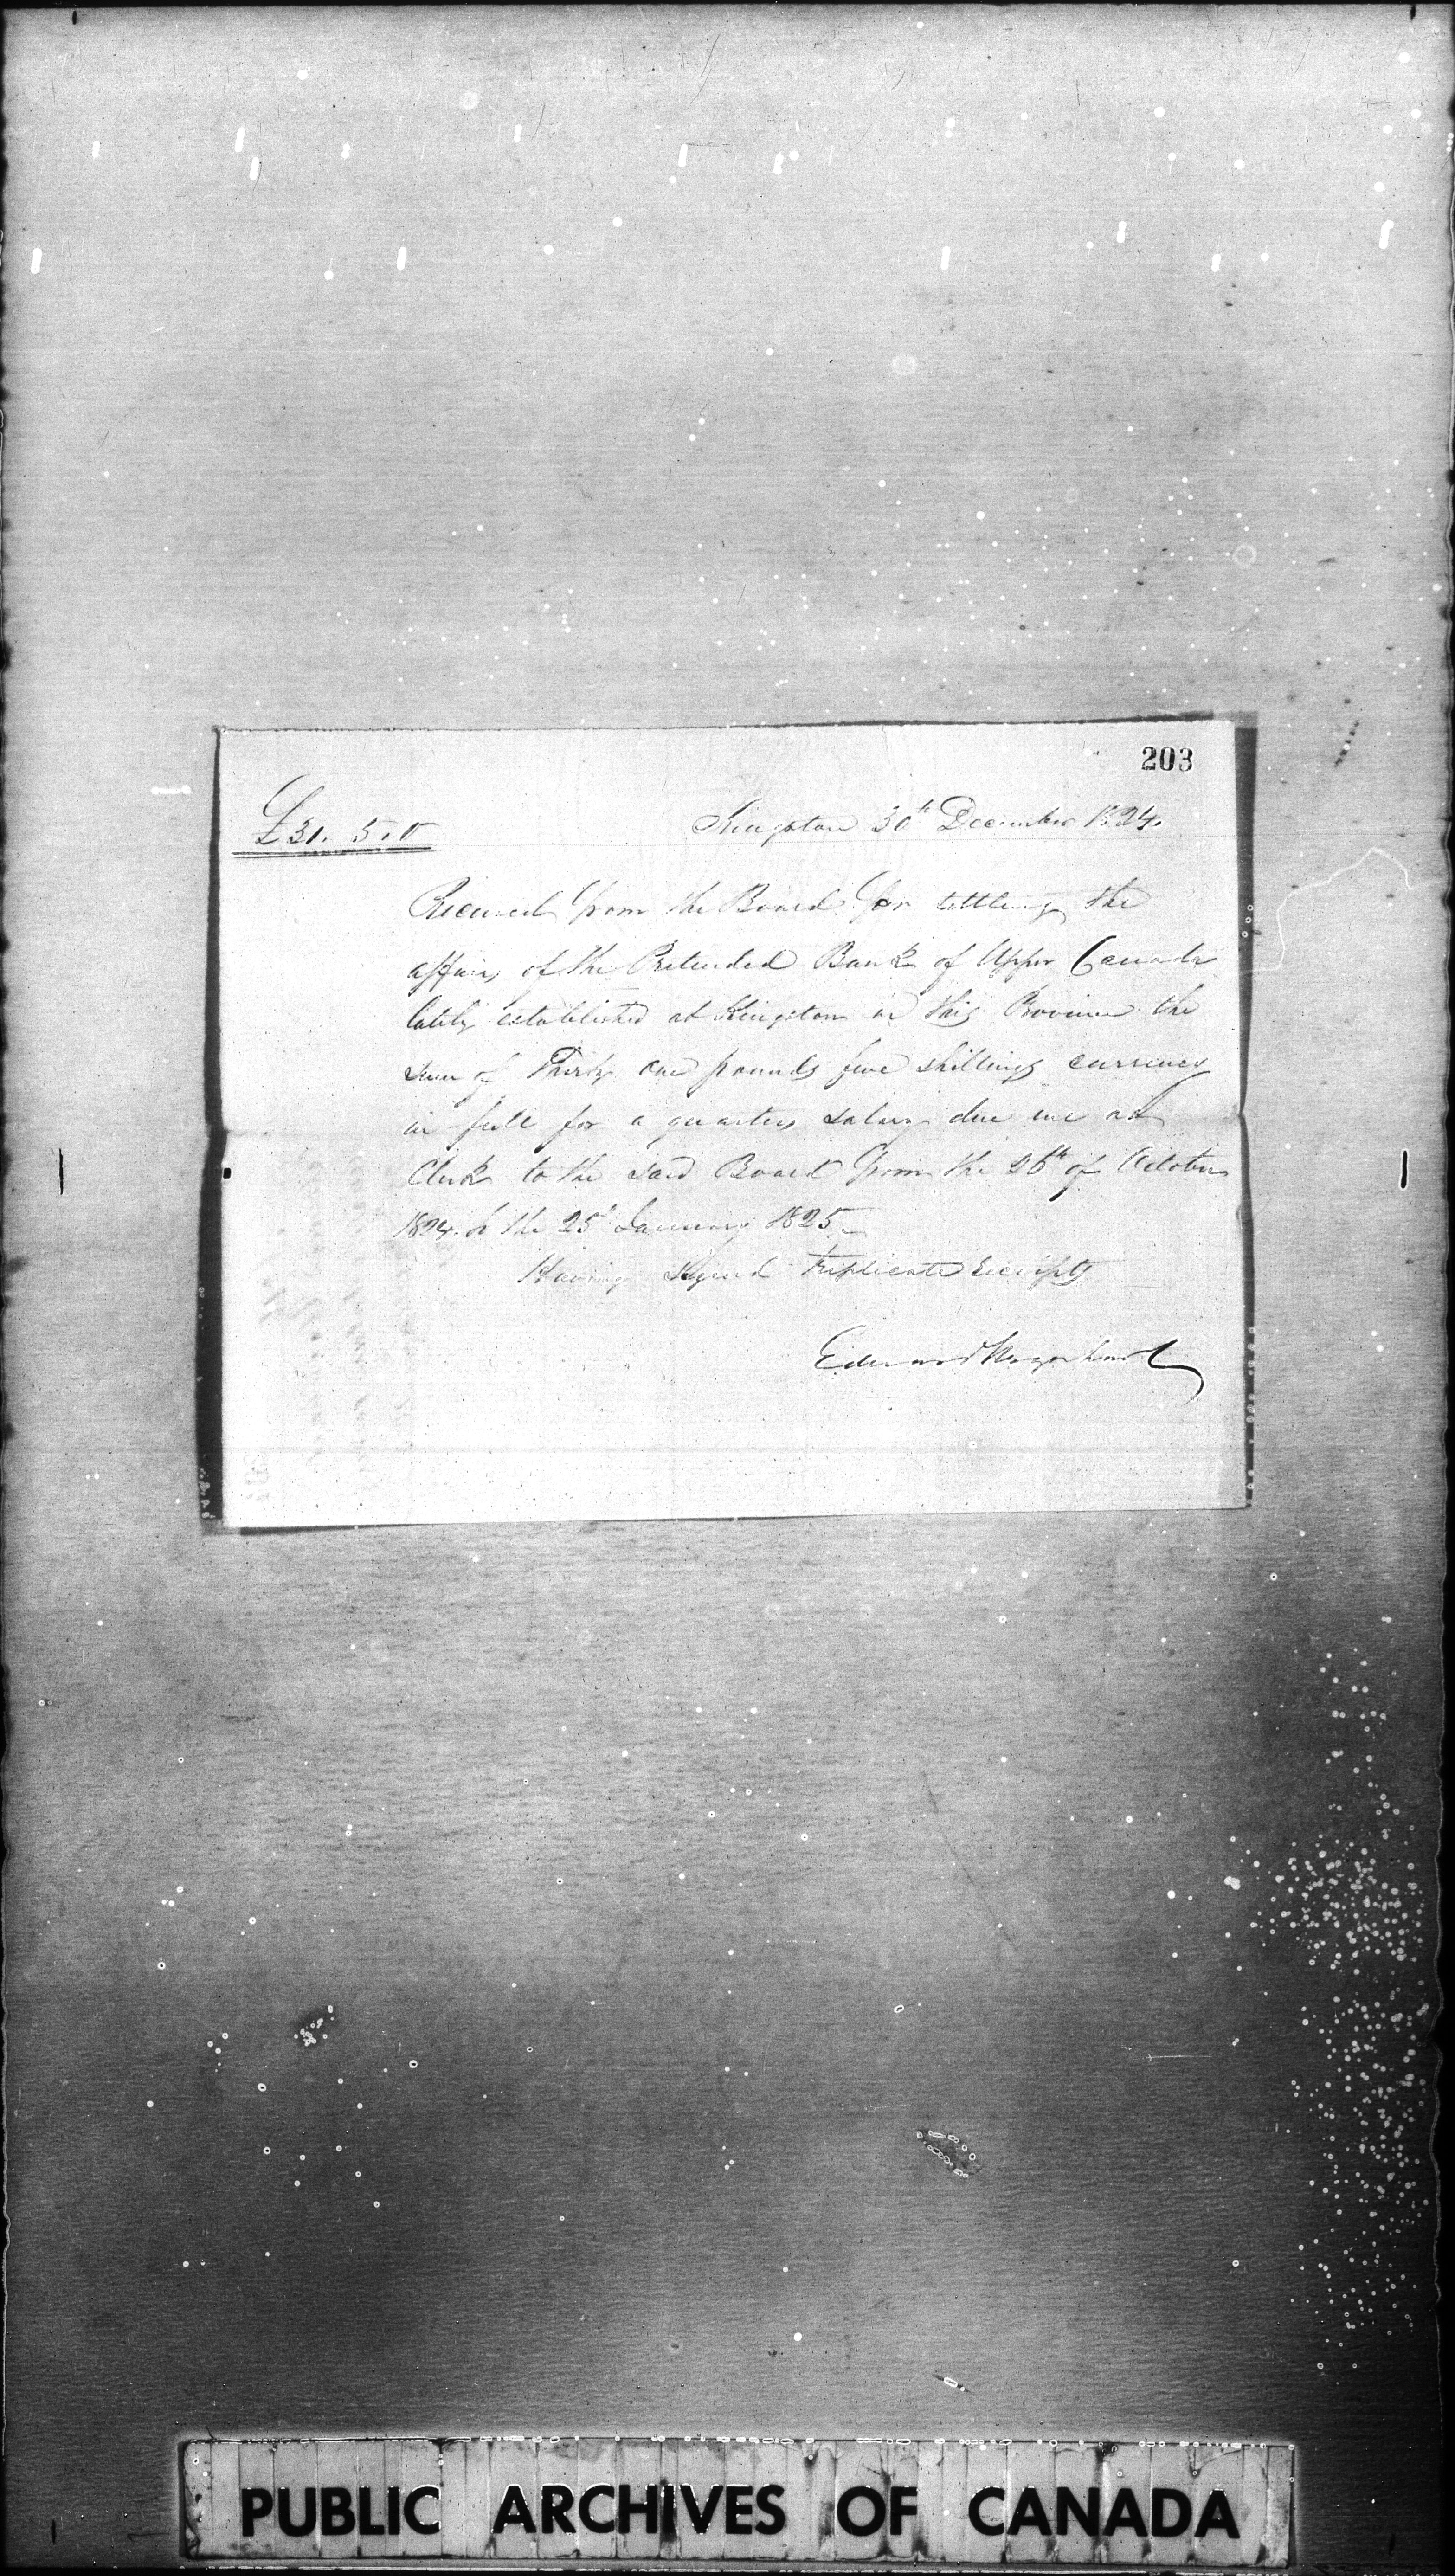 203
£31. 5. 0
Kingston 30th December 1824.
Received from the Board for settling the
affairs of the Pretended Bank of Upper Canada
lately established at Kingston in this Province the
sum of Thirty one pounds five shillings currency
in full for a quarters salary due me as
Clerk to the said Board from the 26th of October
1824. to the 25th January 1825
Having signed Triplicate Receipts
Edward
PUBLIC ARCHIVES OF CANADA